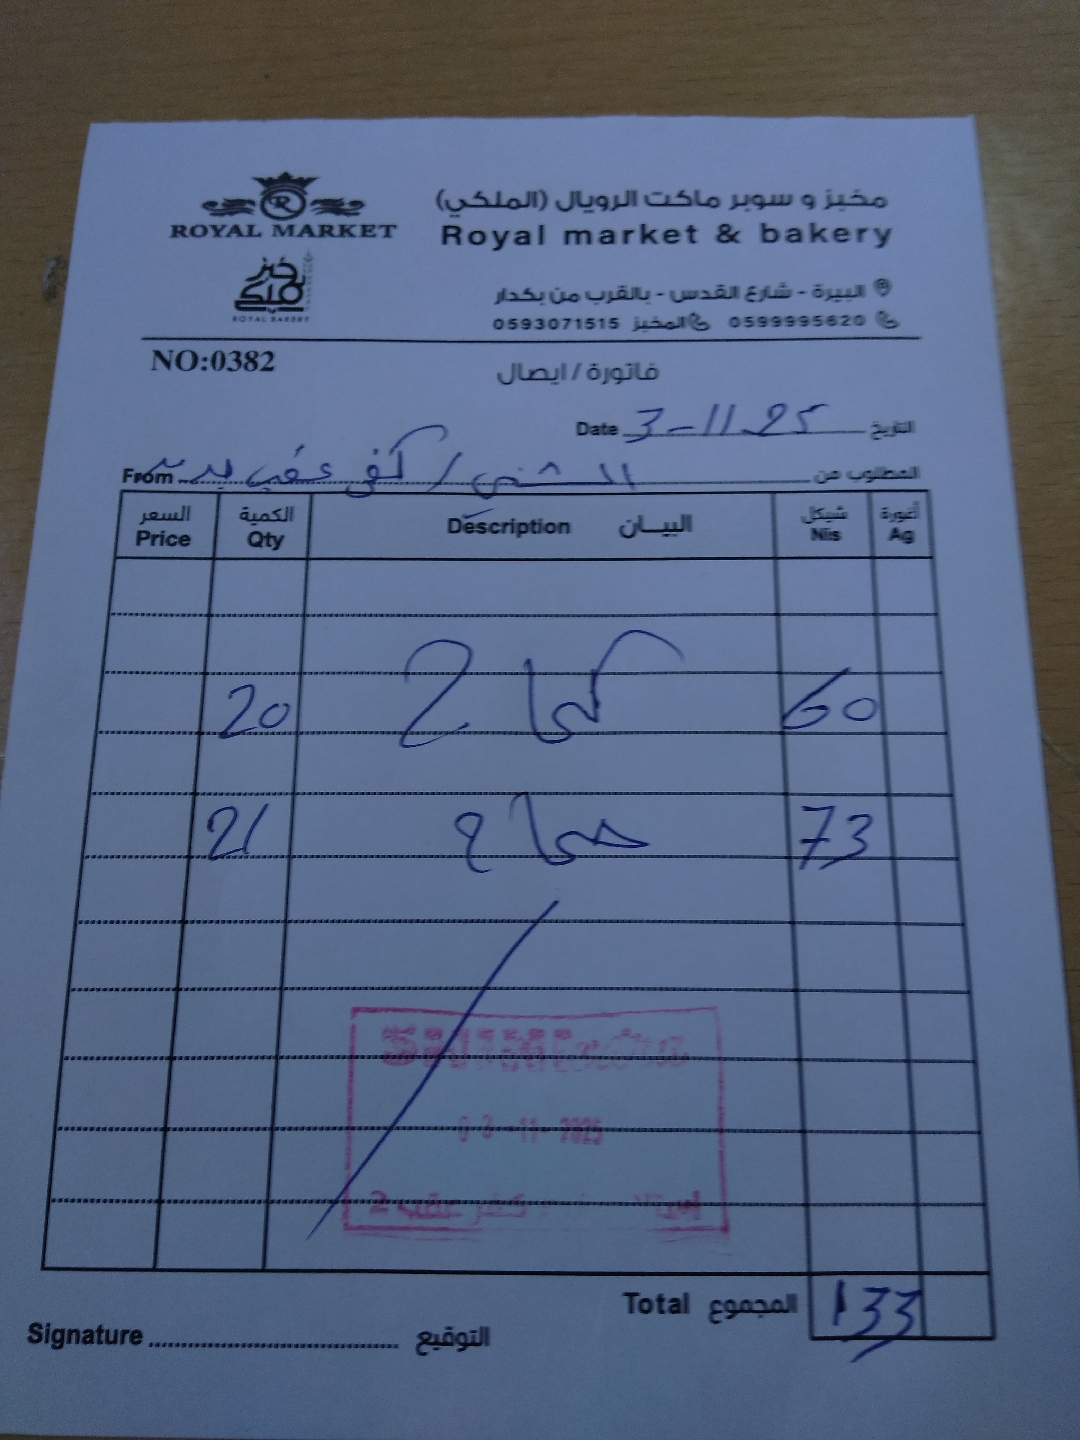 ROYAL MARKET
خبز ملكي
ROYAL BAKERY
مخبز و سوبر ماكت الرويال (الملكي)
Royal market & bakery
البيرة - شارع القدس - بالقرب من بكدار
0599995620 المخبز 0593071515
NO:0382
فاتورة / ايصال
Date 3-11-25 التاريخ
From الشني / كفر عقب المطلوب من
السعر الكمية البيان شيكل أغورة
Price Qty Description Nis Ag
20 كماج 60
21 حمام 73
SHINI
03-11-2025
كفر عقب 2
Total المجموع 133
Signature التوقيع